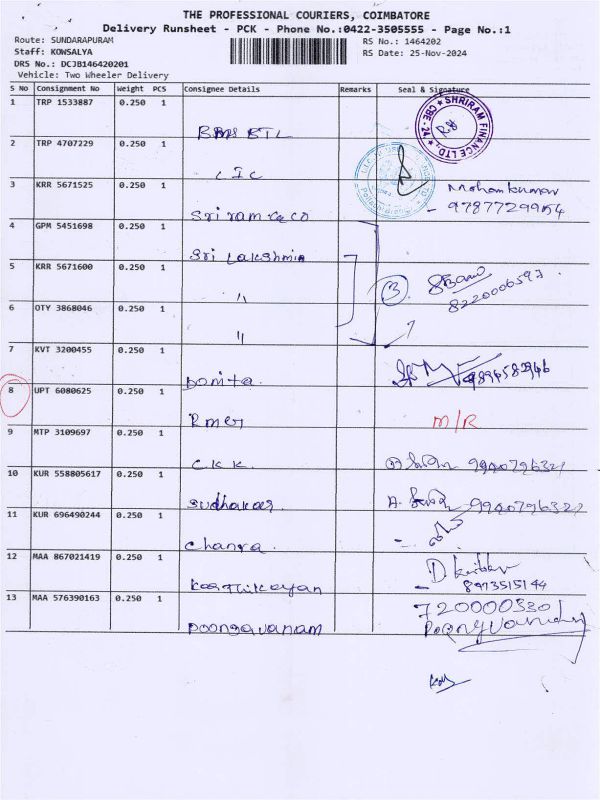 THE PROFESSIONAL COURIERS, COIMBATORE
Delivery Runsheet - PCK - Phone No.:0422-3505555 - Page No.:1
Route: SUNDARAPURAM
RS No.: 1464202
Staff: KOWSALYA
RS Date: 25-Nov-2024
DRS No.: DCJB146420201
Vehicle: Two Wheeler Delivery
S No Consignment No Weight PCS Consignee Details Remarks Seal & Signature
1 TRP 1533887 0.250 1
BTL
SHRIRAM FINANCE LTD., CBE - 24
2 TRP 4707229 0.250 1
LIC
3 KRR 5671525 0.250 1
Sriram & co
Mohankumar
9787729954
4 GPM 5451698 0.250 1
Sri Lakshmi
5 KRR 5671600 0.250 1
"
3
8220006593
6 OTY 3868046 0.250 1
"
7 KVT 3200455 0.250 1
Domita
8 UPT 6080625 0.250 1
M/R
9 MTP 3109697 0.250 1
C.K.K.
9940796321
10 KUR 558805617 0.250 1
Sudhakar
9940796321
11 KUR 696490244 0.250 1
Chanra
12 MAA 867021419 0.250 1
Karthikeyan
8973515144
13 MAA 576390163 0.250 1
Poongavanam
7200005301